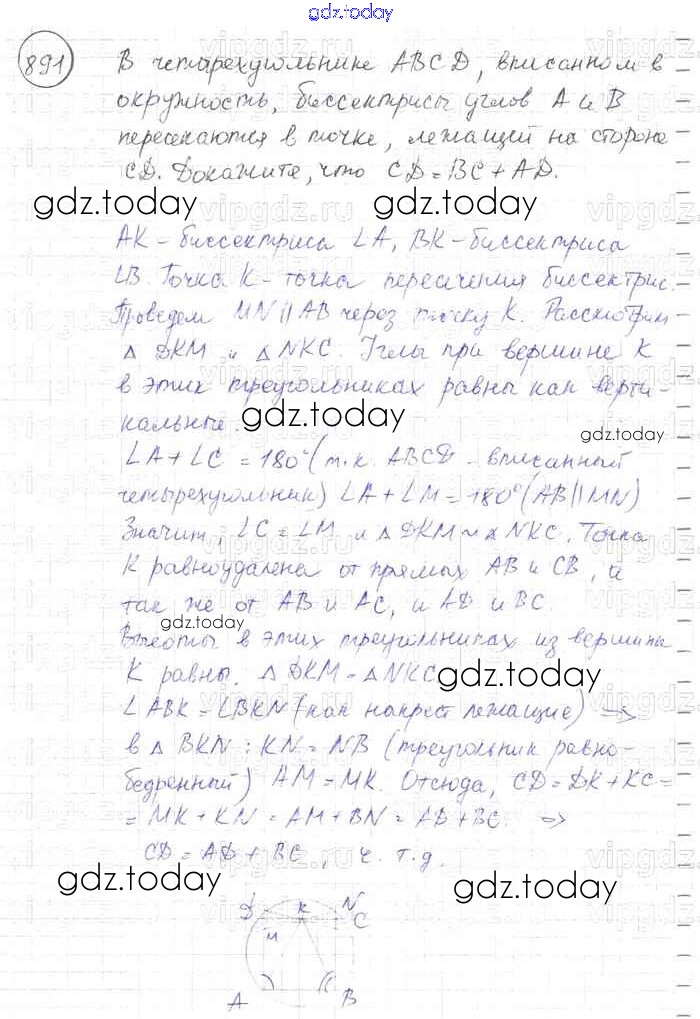 gdz.today
891 В четырехугольнике ABCD, вписанном в
окружность, биссектрисы углов A и B
пересекаются в точке, лежащей на стороне
CD. Докажите, что CD = BC + AD.
gdz.today gdz.today
AK - биссектриса ∠A, BK - биссектриса
∠B. Точка K - точка пересечения биссектрис.
Проведем MN || AB через точку K. Рассмотрим
△ DKM и △ NKC. Углы при вершине K
в этих треугольниках равны как верти-
кальные.
gdz.today gdz.today
∠A + ∠C = 180° (т.к. ABCD - вписанный
четырехугольник) ∠A + ∠M = 180° (AB || MN)
Значит, ∠C = ∠M и △ DKM ~ △ NKC. Точка
K равноудалена от прямых AB и CB, а
так же от AB и AC, и AD и BC.
Высоты в этих треугольниках из вершины
K равны. △ DKM = △ NKC
gdz.today
∠ABK = ∠BKN (как накрест лежащие) =>
в △ BKN: KN = NB (треугольник равно-
бедренный) AM = MK. Отсюда, CD = DK + KC =
= MK + KN = AM + BN = AD + BC. =>
CD = AD + BC, ч. т. д.
gdz.today gdz.today
D K N
C
M
A B